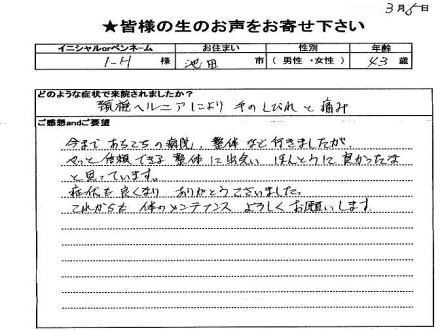 3月5日
★皆様の生のお声をお寄せ下さい
イニシャルorペンネーム お住まい 性別 年齢
I-H 様 池田 市 (男性・女性) 43 歳
どのような症状で来院されましたか?
頚椎ヘルニアにより 手のしびれと痛み
ご感想andご要望
今まで あちこちの病院、整体など行きましたが、
やっと信頼できる整体に出会い ほんとうに良かったな
と思っています。
症状も良くなり ありがとうございました。
これからも 体のメンテナンス よろしくお願いします。